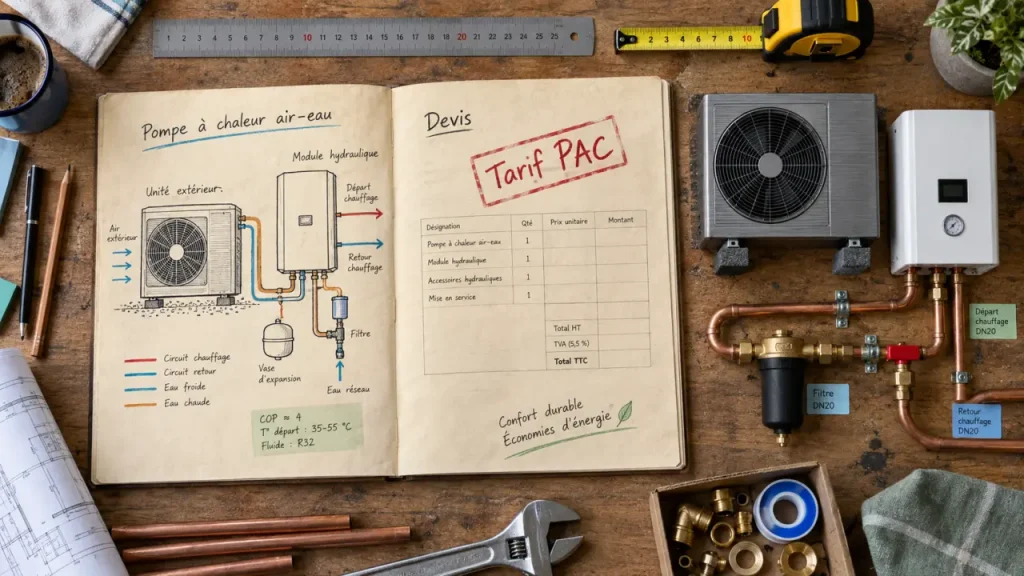 1 2 3 4 5 6 7 8 9 10
Pompe à chaleur air-eau
Module hydraulique
Unité extérieur.
Départ
chauffage
Air
extérieur
Retour
chauffage
Filtre
Vase
d'expansion
Eau réseau
Circuit chauffage
Circuit retour
Eau froide
Eau chaude
COP ≈ 4
T° départ : 35-55 °C
Fluide : R32
Devis
Tarif PAC
Désignation Qté Prix unitaire Montant
Pompe à chaleur air-eau 1
Module hydraulique 1
Accessoires hydrauliques 1
Mise en service 1
Total HT
TVA (5,5 %)
Total TTC
Confort durable
Économies d'énergie
Départ
chauffage
DN20
Filtre
DN20
Retour
chauffage
DN20